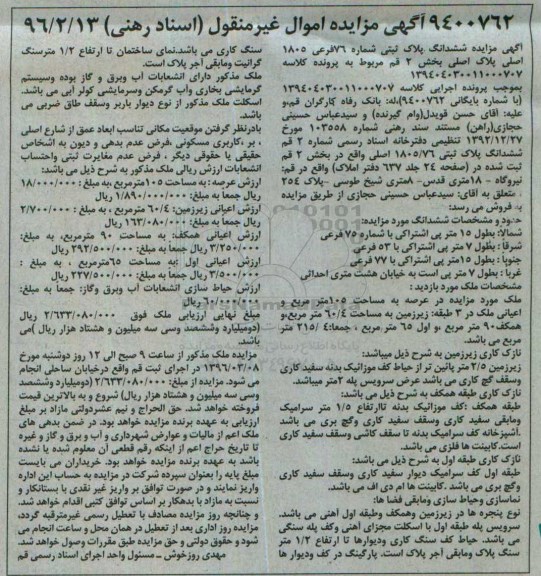 ۹۴۰۰۷۶۲ آگهی مزایده اموال غیرمنقول (اسناد رهنی) ۹۶/۲/۱۳
آگهی مزایده ششدانگ پلاک ثبتی شماره ۷۶فرعی ۱۸۰۵
اصلی پلاک اصلی بخش ۲ قم مربوط به پرونده کلاسه
۱۳۹۴۰۴۰۳۰۰۱۱۰۰۰۷۰۷
بموجب پرونده اجرایی کلاسه ۱۳۹۴۰۴۰۳۰۰۱۱۰۰۰۷۰۷
(با شماره بایگانی ۹۴۰۰۷۶۲)،له: بانک رفاه کارگران قم،و
علیه: آقای حسن قویدل(وام گیرنده) و سیدعباس حسینی
حجازی(راهن) مستند سند رهنی شماره ۱۰۳۵۵۸ مورخ
۱۳۹۲/۱۲/۲۷ تنظیمی دفترخانه اسناد رسمی شماره ۲ قم
ششدانگ پلاک ثبتی ۱۸۰۵/۷۶ اصلی واقع در بخش ۲ قم
ثبت شده در (صفحه ۲۴ جلد ۶۳۷ دفتر املاک) واقع در قم:
نیروگاه - ۱۸متری قدس- ۸متری شیخ طوسی -پلاک ۲۵۴
، متعلق به آقای: سیدعباس حسینی حجازی از طریق مزایده
به فروش می رسد:
حدود و مشخصات ششدانگ مورد مزایده:
شمالا: بطول ۱۵ متر پی اشتراکی با شماره ۷۵ فرعی
شرقا : بطول ۷ متر پی اشتراکی با ۵۳ فرعی
جنوبا : بطول ۱۵متر پی اشتراکی با ۷۷ فرعی
غربا : بطول ۷ متر پی است به خیابان هشت متری احداثی
مشخصات ملک مورد بازدید :
ملک مورد مزایده در عرصه به مساحت ۱۰۵متر مربع و
اعیانی ملک در ۳ طبقه: زیرزمین به مساحت ۶۰/۴ متر مربع،و
همکف۹۰ متر مربع ،و اول ۶۵ متر مربع ، جمعا: ۲۱۵/۴ متر
مربع می باشد.
نازک کاری زیرزمین به شرح ذیل میباشد:
زیرزمین ۲/۵ متر پائین تر از حیاط کف موزائیک بدنه سفید کاری
وسقف گچ کاری می باشد عرض سرویس پله ۲متر میباشد.
نازک کاری طبقه همکف به شرح ذیل می باشد:
طبقه همکف :کف موزائیک بدنه تاارتفاع ۱/۵ متر سرامیک
ومابقی سفید کاری وسقف سفید کاری وگچ بری می باشد
.آشپزخانه کف سرامیک بدنه تا سقف کاشی وسقف سفید کاری
است.کابینت ها فلزی می باشد.
نازک کاری طبقه اول به شرح ذیل می باشد:
طبقه اول کف سرامیک دیوار سفید کاری وسقف سفید کاری
وگچ بری می باشد .کابینت ها ام دی اف می باشد.
نماسازی وحیاط سازی ومابقی فضا ها:
نوع پنجره ها در زیرزمین وهمکف وطبقه اول آهنی می باشد.
سرویس پله طبقه اول با اسکلت مجزای آهنی وکف پله سنگی
می باشد. حیاط کف سنگ کاری ودیوارها تا ارتفاع ۱/۲ متر
سنگ پلاک ومابقی آجر پلاک است. پارکینگ در کف ودیوار ها
سنگ کاری می باشد.نمای ساختمان تا ارتفاع ۱/۲ مترسنگ
گرانیت ومابقی آجر پلاک است.
ملک مذکور دارای انشعابات آب وبرق و گاز بوده وسیستم
گرمایشی بخاری وآب گرمکن وسرمایشی کولر آبی می باشد.
اسکلت ملک مذکور از نوع دیوار باربر وسقف طاق ضربی می
باشد.
بادرنظر گرفتن موقعیت مکانی تناسب ابعاد عمق از شارع اصلی
، بر ،کاربری مسکونی ،فرض عدم بدهی و دیون به اشخاص
حقیقی یا حقوقی دیگر ، فرض عدم مغایرت ثبتی واحتساب
انشعابات ارزش ریالی ملک مذکور به شرح ذیل می باشد:
ارزش عرصه: به مساحت ۱۰۵مترمربع ،به مبلغ : ۱۸/۰۰۰/۰۰۰
ریال جمعا به مبلغ: ۱/۸۹۰/۰۰۰/۰۰۰ ریال
ارزش اعیانی زیرزمین: ۶۰/۴ مترمربع ، به مبلغ : ۲/۷۰۰/۰۰۰
ریال جمعا به مبلغ : ۱۶۳/۰۸۰/۰۰۰ ریال
ارزش اعیانی همکف: به مساحت ۹۰ مترمربع، به مبلغ:
۳/۲۵۰/۰۰۰ ریال جمعا به مبلغ : ۲۹۲/۵۰۰/۰۰۰ ریال
ارزش اعیانی اول :به مساحت ۶۵مترمربع ، به مبلغ :
۳/۵۰۰/۰۰۰ ریال جمعا به مبلغ : ۲۲۷/۵۰۰/۰۰۰ ریال
ارزش حیاط سازی انشعابات آب وبرق وگاز: جمعا به مبلغ:
۶۰/۰۰۰/۰۰۰ ریال
مبلغ نهایی ارزیابی ملک فوق ۲/۶۳۳/۰۸۰/۰۰۰ ریال
(دومیلیارد وششصد وسی سه میلیون و هشتاد هزار ریال )می
باشد.
مزایده ملک مذکور از ساعت ۹ صبح الی ۱۲ روز دوشنبه مورخ
۱۳۹۶/۰۳/۰۸ در اجرای ثبت قم واقع درخیابان ساحلی انجام
می شود. مزایده از مبلغ: ۲/۶۳۳/۰۸۰/۰۰۰ (دومیلیارد وششصد
وسی سه میلیون و هشتاد هزار ریال) شروع و به بالاترین قیمت
فروخته خواهد شد. حق الحراج و نیم عشردولتی مازاد بر مبلغ
ارزیابی به عهده برنده مزایده خواهد بود. در ضمن بدهی های
ملک اعم از مالیات و عوارض شهرداری و آب و برق و گاز و غیره
تا تاریخ حراج اعم از اینکه رقم قطعی آن معلوم شده یا نشده
باشد به عهده برنده مزایده خواهد بود. خریداران می بایست
مبلغ پایه را بعنوان سپرده شرکت در مزایده به حساب این اداره
واریز نمایند و در صورت توافق بر واریز غیر نقدی با بستانکار و
نسبت به مازاد با بدهکار بر اساس توافق کتبی اقدام خواهد شد.
و چنانچه روز مزایده مصادف با تعطیل رسمی غیرمترقبه گردد،
مزایده روز اداری بعد از تعطیل در همان محل و ساعت انجام می
شود و حقوق دولتی و حق مزایده طبق مقررات وصول خواهد شد.
مهدی روزخوش ـ مسئول واحد اجرای اسناد رسمی قم